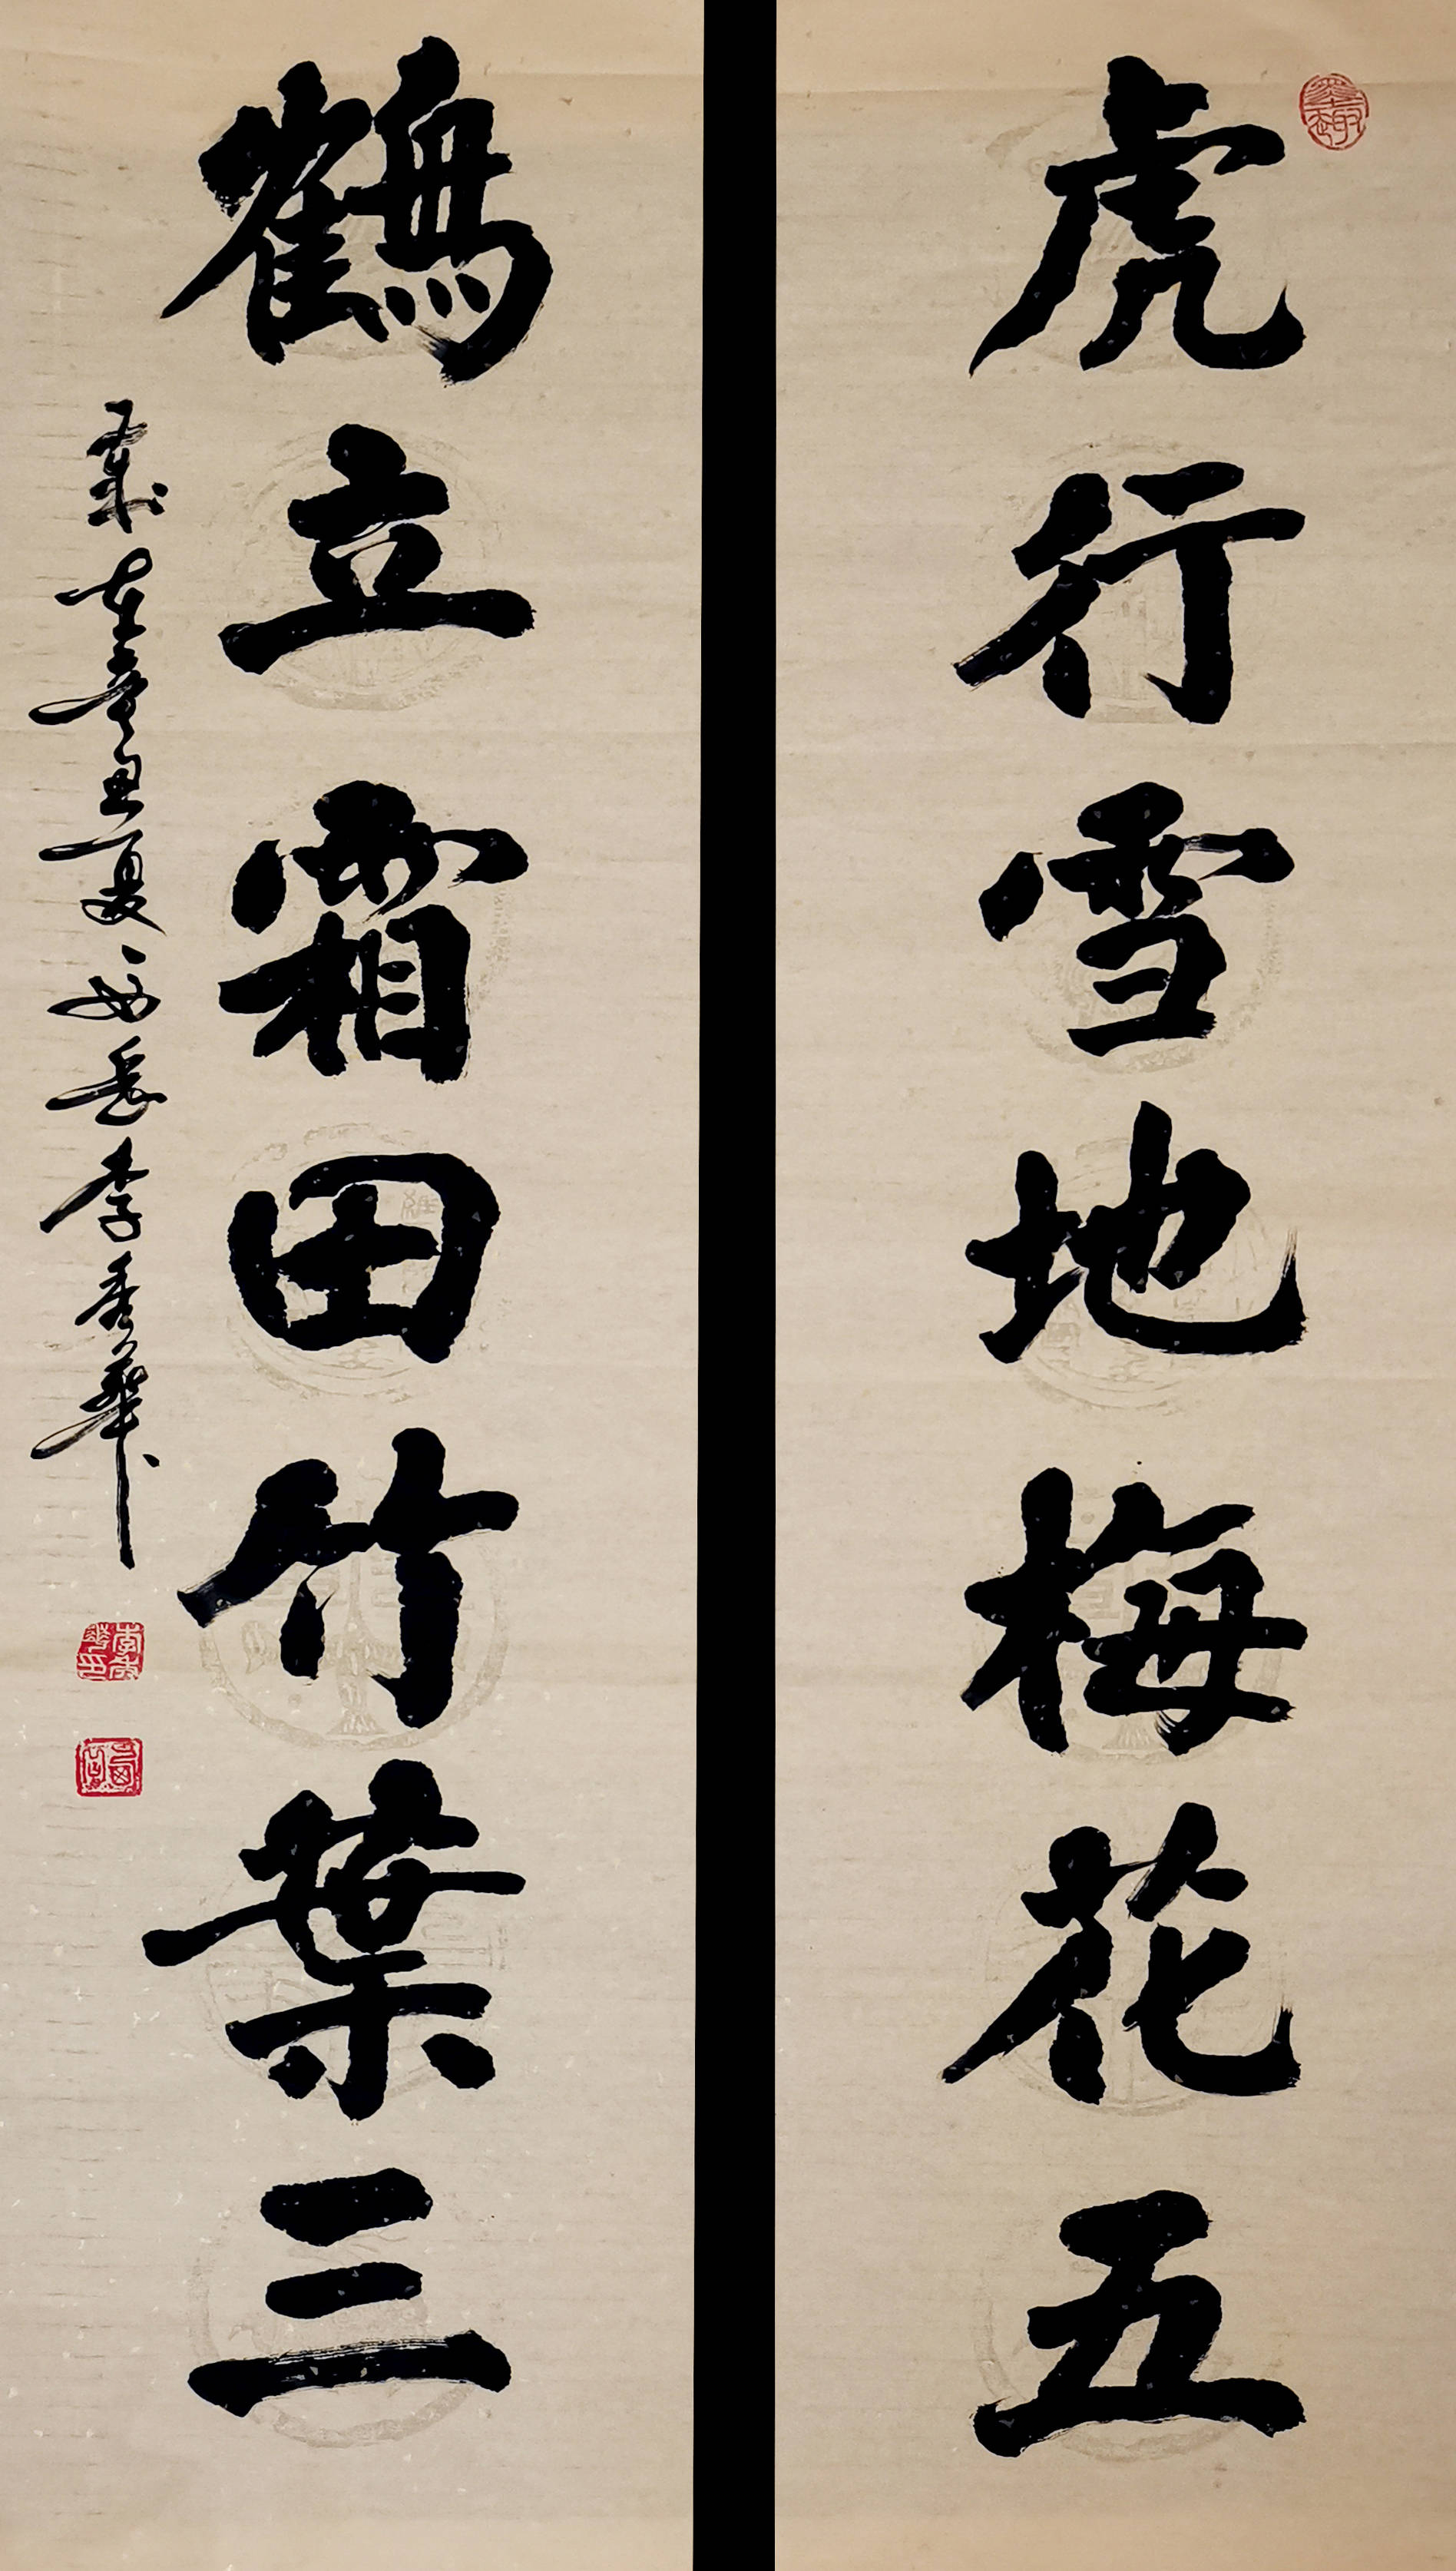 虎行雪地梅花五
鶴立霜田竹葉三
歲在辛丑夏於長李秀華